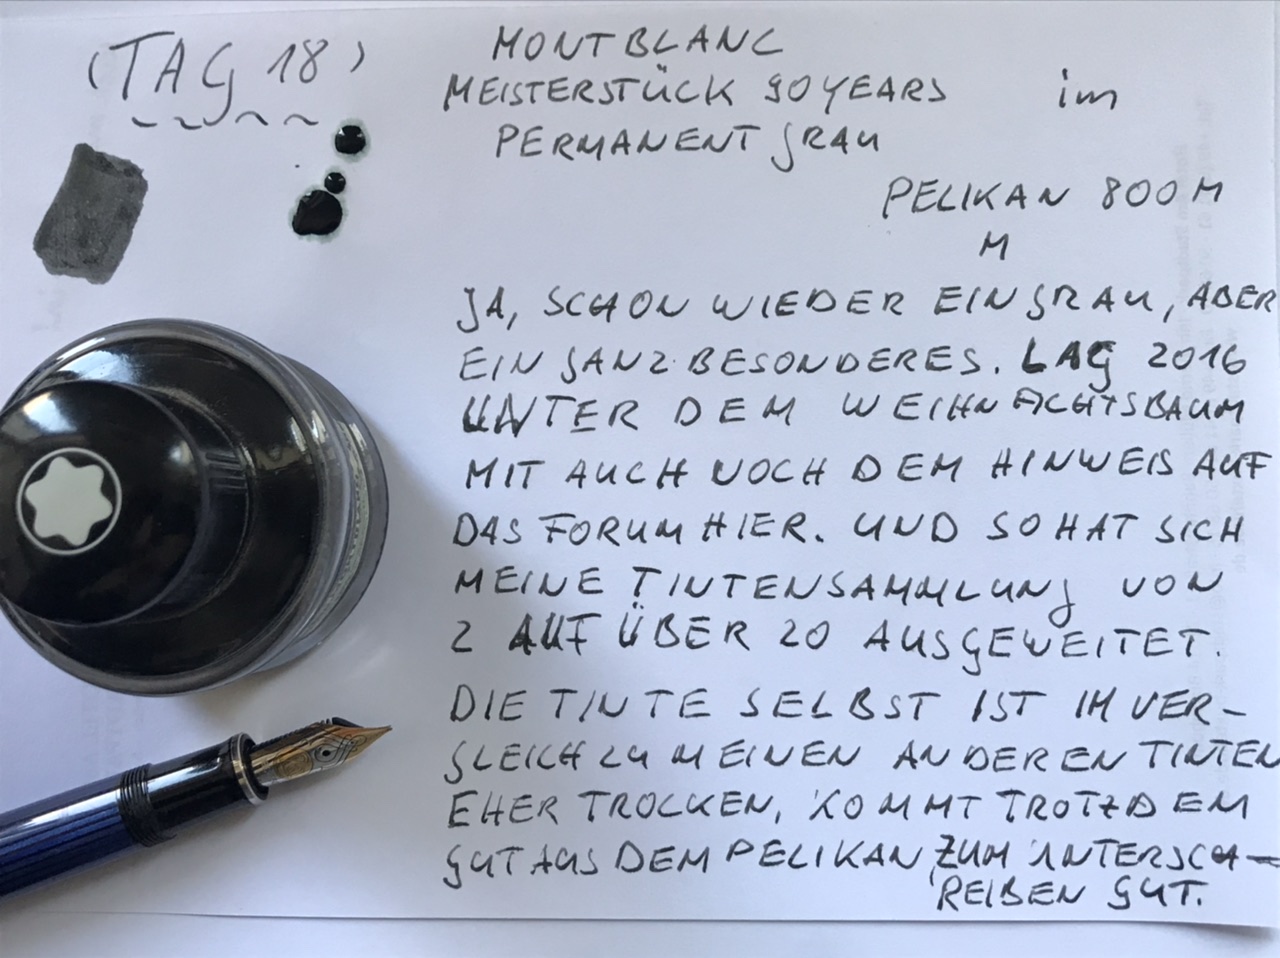 (TAG 18)
MONTBLANC
MEISTERSTÜCK 90 YEARS im
PERMANENT GRAU
PELIKAN 800M
M
JA, SCHON WIEDER EIN GRAU, ABER
EIN GANZ BESONDERES. LAG 2016
UNTER DEM WEIHNACHTSBAUM
MIT AUCH NOCH DEM HINWEIS AUF
DAS FORUM HIER. UND SO HAT SICH
MEINE TINTENSAMMLUNG VON
2 AUF ÜBER 20 AUSGEWEITET.
DIE TINTE SELBST IST IM VER-
GLEICH ZU MEINEN ANDEREN TINTEN
EHER TROCKEN, KOMMT TROTZDEM
GUT AUS DEM PELIKAN, ZUM UNTERSCH-
REIBEN GUT.